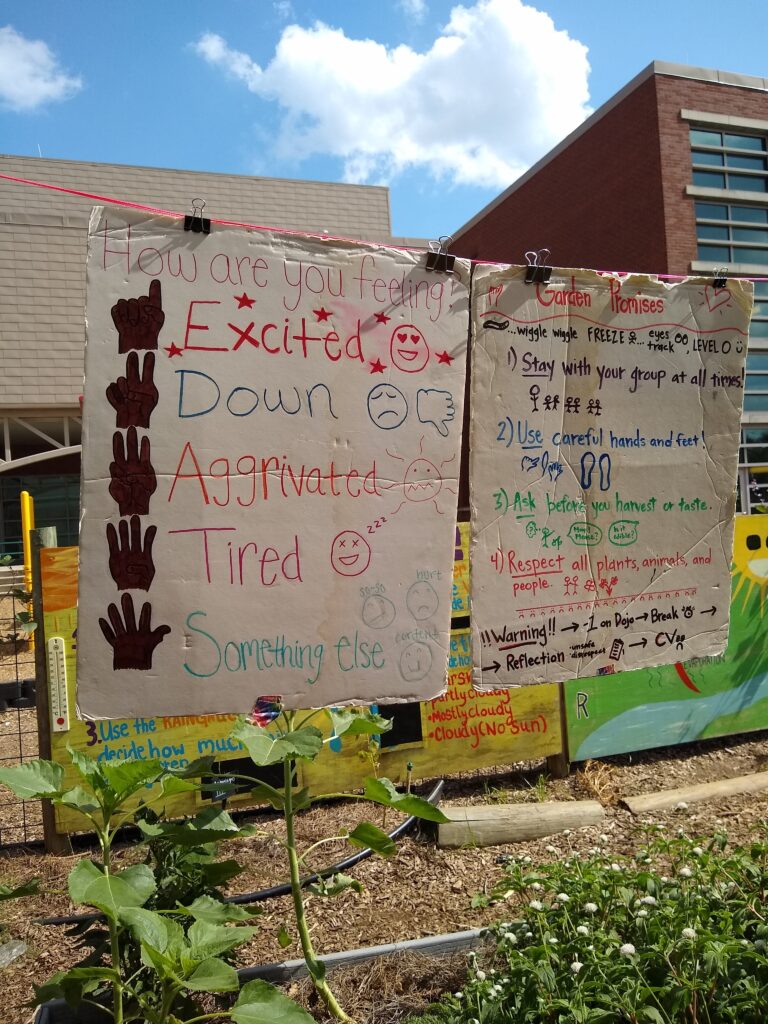 How are you feeling?
Excited
Down
Aggrivated
zzz
Tired
so-so
hurt
content
Something else
Garden Promises
...wiggle wiggle FREEZE ... eyes track , LEVEL 0
1) Stay with your group at all times!
2) Use careful hands and feet!
3) Ask before you harvest or taste.
Much Please?
is it edible?
4) Respect all plants, animals, and
people.
!!Warning!! → -1 on Dojo → Break →
→ Reflection ·unsafe ·disrespect → CV
3. Use the
decide how much
Partly cloudy
•Mostly cloudy
•Cloudy (No sun)
R